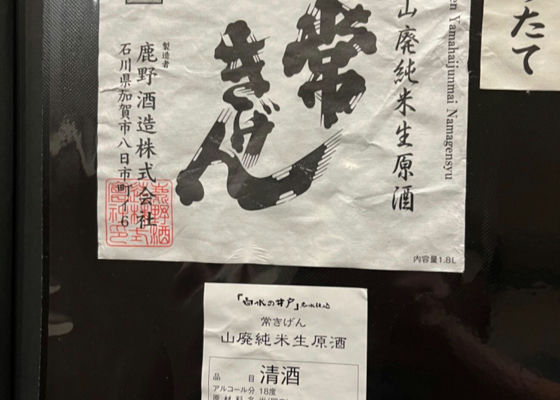 りたて
en Yamahaijunmai Namagensyu
山廃純米生原酒
常
きげん
製造者
鹿野酒造株式会社
石川県加賀市八日市町イ6
内容量1.8L
「白水の井戸」名水仕込
常きげん
山廃純米生原酒
品 目 清酒
アルコール分 18度